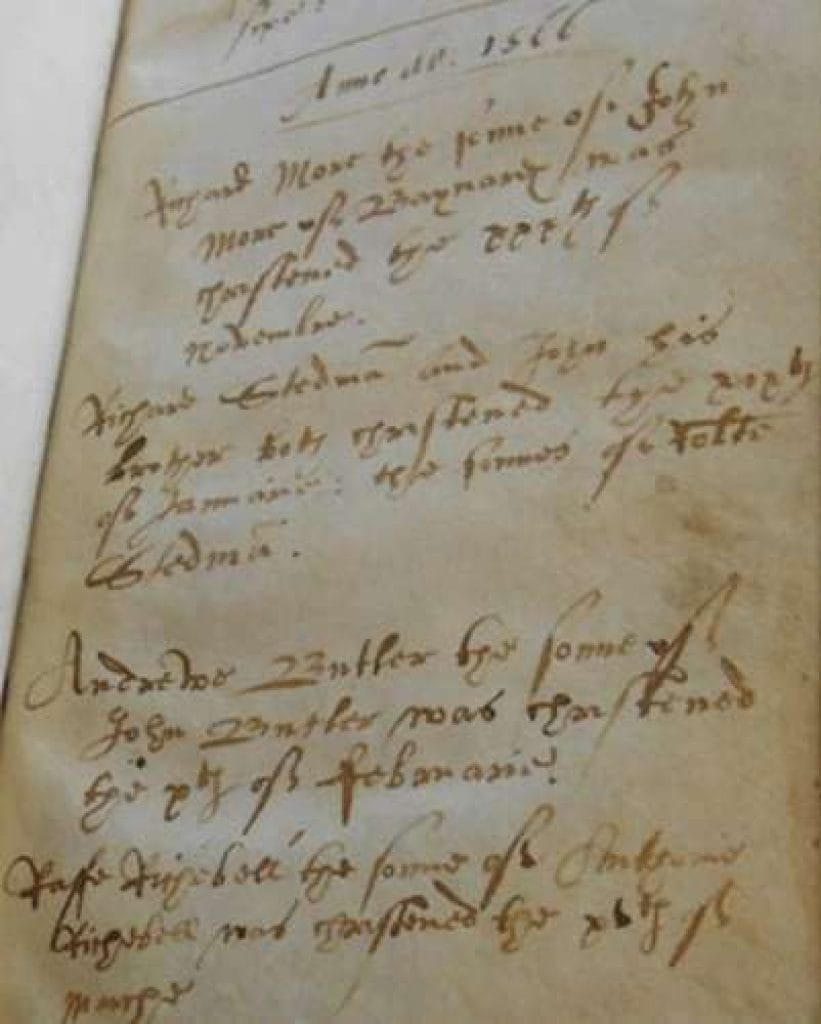 Anno do. 1566
Richard More the sonne off John
More off Baynard was
christened the xxxth off
novembre.
Richard Stedmā and John his
brother both christened the xixth
off Januarie: the sonnes off
Stedmā.
Andrewe Butler the sonne off
John Butler was christened
the xth off Februarie.
Raffe Richebell the sonne off Antonie
Richebell was christened the xvth off
Marche